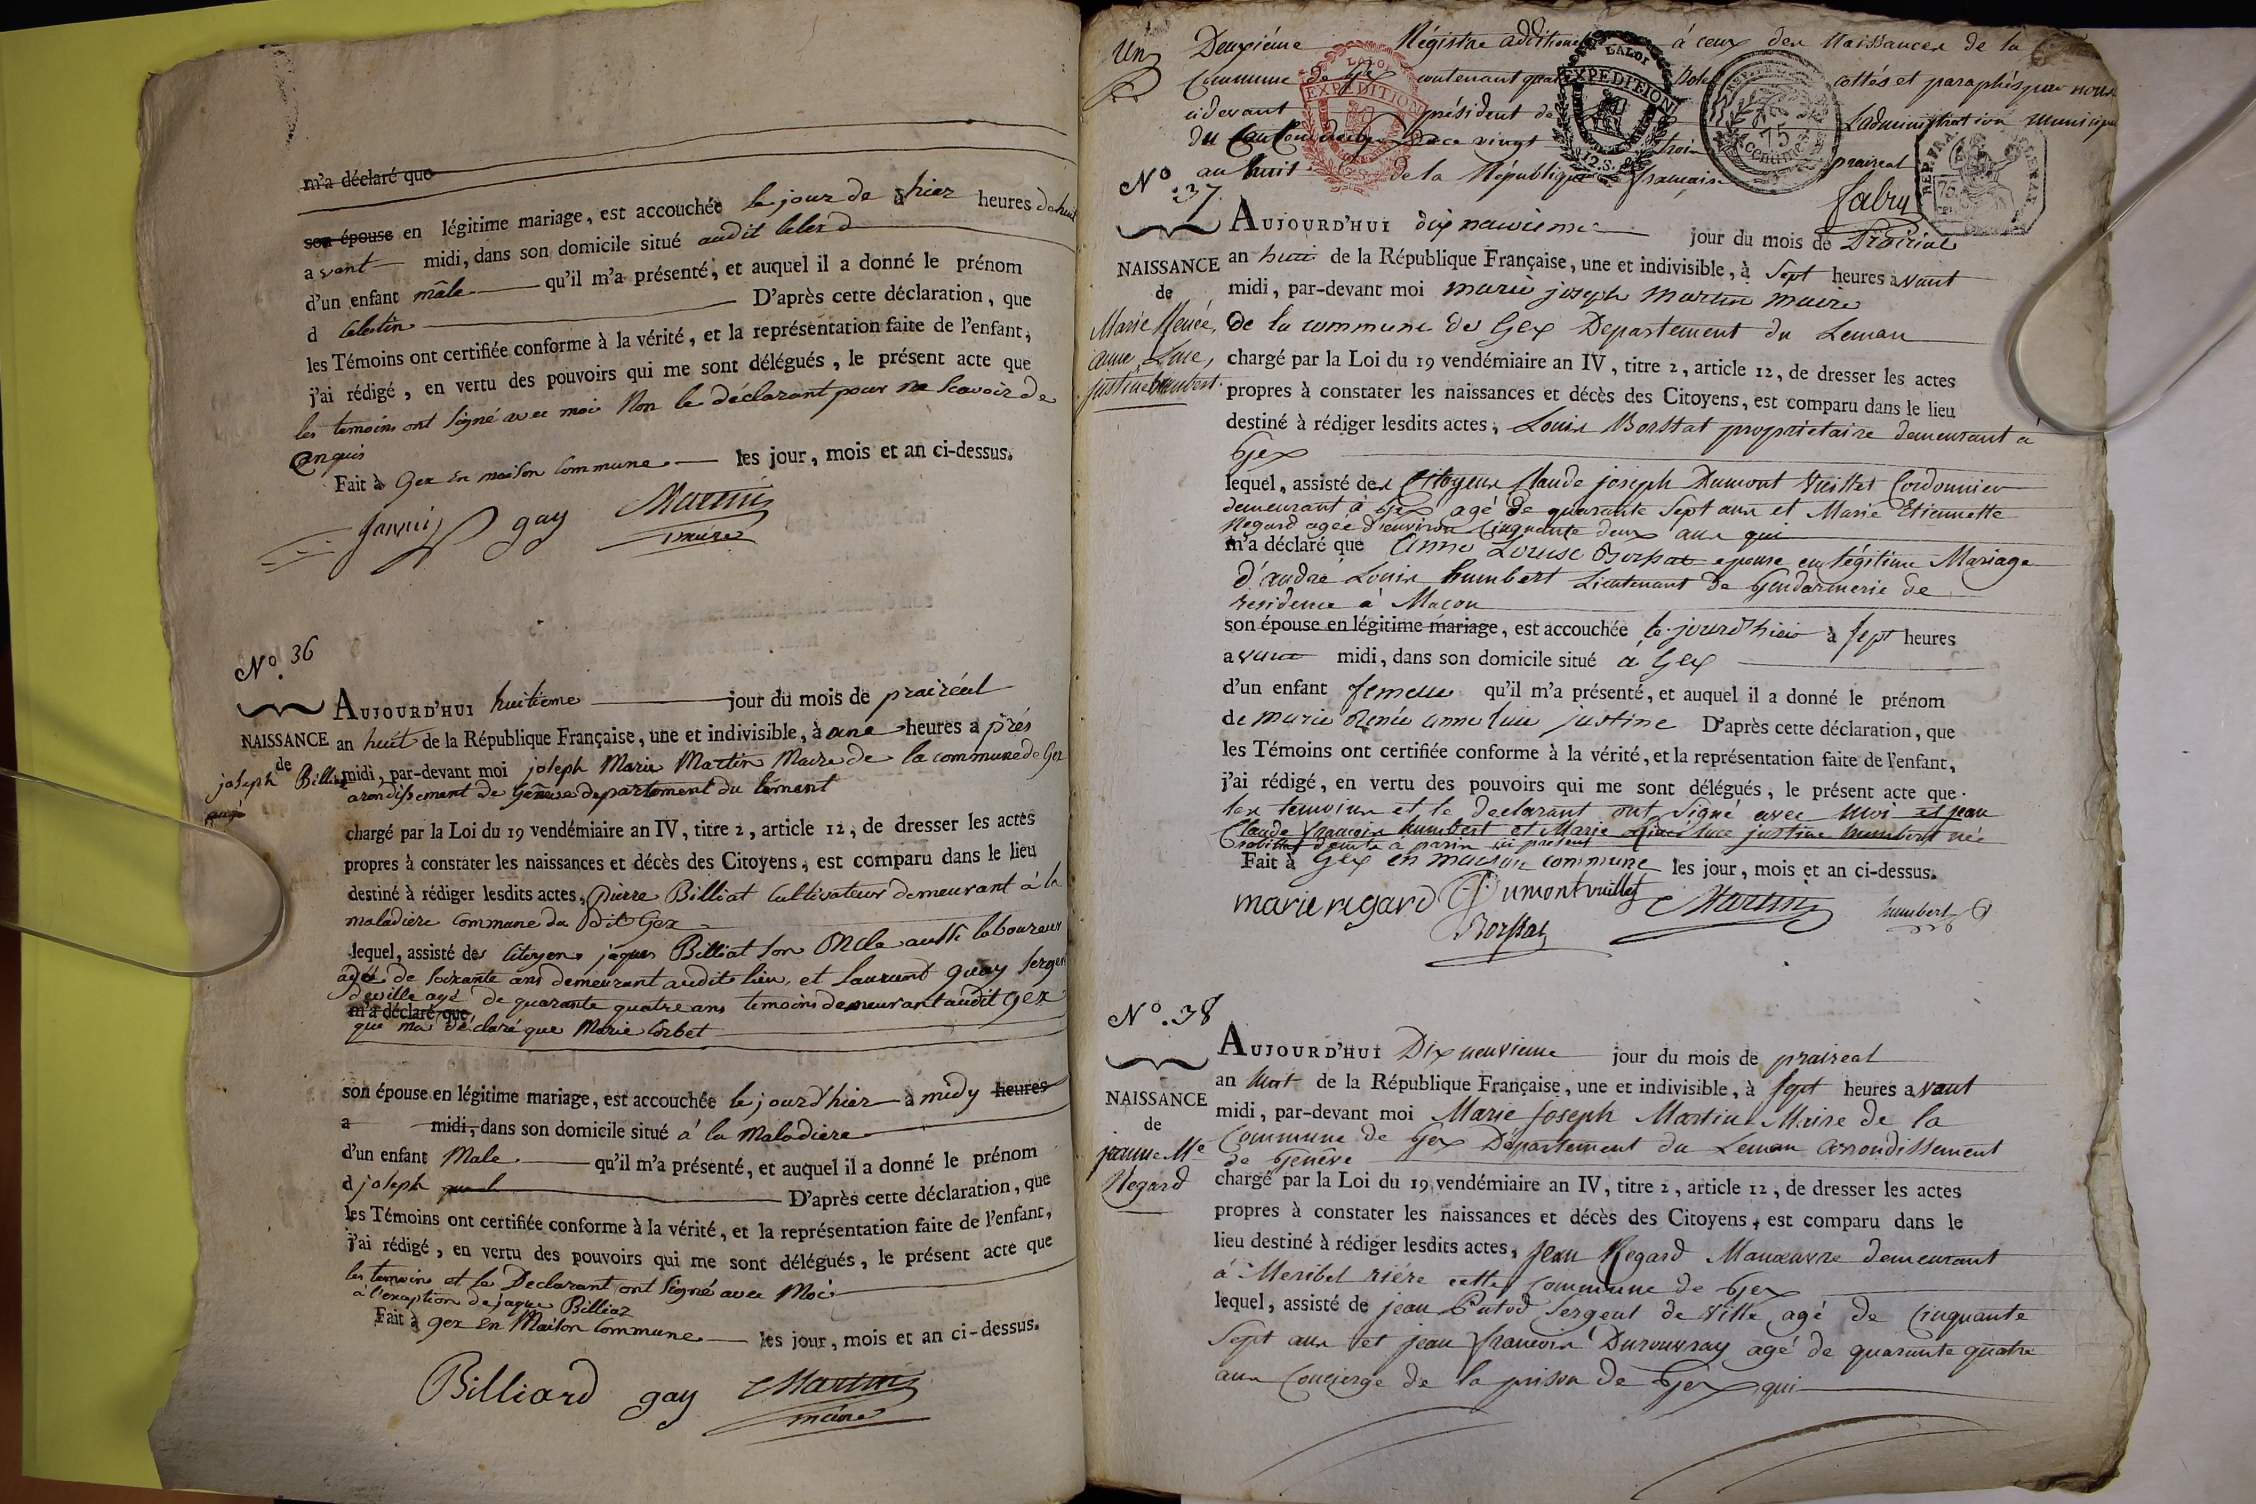 m'a déclaré que
son épouse en légitime mariage, est accouchée le jour de hier à heures de huit
avant midi, dans son domicile situé audit
d'un enfant mâle qu'il m'a présenté, et auquel il a donné le prénom
d Celestin D'après cette déclaration, que
les Témoins ont certifiée conforme à la vérité, et la représentation faite de l'enfant,
j'ai rédigé, en vertu des pouvoirs qui me sont délégués, le présent acte que
les temoins ont signé avec moi Non le déclarant pour ne Scavoir de
Fait à Gex En maison Commune les jour, mois et an ci-dessus.
gay Martin
maire
No. 36
NAISSANCE
de
joseph Billiat
AUJOURD'HUI huitieme jour du mois de prairéal
an huit de la République Française, une et indivisible, à une heures a prés
midi, par-devant moi joseph Marie Martin Maire de la commune de Gex
arondissement de Genève departement du lément
chargé par la Loi du 19 vendémiaire an IV, titre 2, article 12, de dresser les actes
propres à constater les naissances et décès des Citoyens, est comparu dans le lieu
destiné à rédiger lesdits actes, pierre Billiat Cultivateur demeurant à la
maladière commune du dit Gex
lequel, assisté des Citoyens jaques Billiat son oncle aussi laboureur
agé de soixante ans demeurant audit lieu, et Laurent guay sergen
deville agé de quarante quatre ans temoins demeurant audit Gex
m'a déclaré que
que ma déclaré que Marie Corbet
son épouse en légitime mariage, est accouchée le jour d'hier à midy heures
a midi, dans son domicile situé à la Maladière
d'un enfant Male qu'il m'a présenté, et auquel il a donné le prénom
d joseph D'après cette déclaration, que
les Témoins ont certifiée conforme à la vérité, et la représentation faite de l'enfant,
j'ai rédigé, en vertu des pouvoirs qui me sont délégués, le présent acte que
les temoins et le Declarant ont signé avec Moi
à l'exception de jaque Billiaz
Fait à gex En Maison Commune les jour, mois et an ci-dessus.
Billiard gay Martin
maire
Un Deuxiéme Régistre additionel à ceux des Naissances de la
Commune de Gex contenant cottés et paraphés par nous
cidevant président de Ladministration municipale
du Canton de Gex vingt trois praireal
au huit de la République française
Fabry
LALOI
EXPÉDITION
12.S.
LALOI
EXPÉDITION
12.S.
75
centimes
REP. FRA
75
No. 37
NAISSANCE
de
Marie Renée,
anne, Luce,
justine humbert.
AUJOURD'HUI dix neuvieme jour du mois de Prairial
an huit de la République Française, une et indivisible, à sept heures avant
midi, par-devant moi marie joseph martin maire
de la commune de Gex Departement du Leman
chargé par la Loi du 19 vendémiaire an IV, titre 2, article 12, de dresser les actes
propres à constater les naissances et décès des Citoyens, est comparu dans le lieu
destiné à rédiger lesdits actes, Louis Borssat propriétaire demeurant à
Gex
lequel, assisté des Citoyens Claude joseph Dumont Vuillet Cordonnier
demeurant à Gex agé de quarante Sept ans et Marie Etiennette
Regard agée d'environ Cinquante deux ans qui
m'a déclaré que Anne Louise Borssat epouse en légitime Mariage
d'andré Louis humbert Lieutenant de Gendarmerie de
residence à Macon
son épouse en légitime mariage, est accouchée le jourd'hier à sept heures
avant midi, dans son domicile situé à Gex
d'un enfant femelle qu'il m'a présenté, et auquel il a donné le prénom
de marie Renée anne luce justine D'après cette déclaration, que
les Témoins ont certifiée conforme à la vérité, et la représentation faite de l'enfant,
j'ai rédigé, en vertu des pouvoirs qui me sont délégués, le présent acte que
les temoins et le declarant ont signé avec moi et jean
Claude françois humbert et Marie luce justine humbert née
Fait à Gex en maison commune les jour, mois et an ci-dessus.
marie regard Dumont vuillet Martin humbert
Borssat
No. 38
NAISSANCE
de
jeanne Me
Regard
AUJOURD'HUI Dix neuvieme jour du mois de prairéal
an huit de la République Française, une et indivisible, à sept heures avant
midi, par-devant moi Marie Joseph Martin Maire de la
Commune de Gex Département du Leman arrondissement
de Genève
chargé par la Loi du 19 vendémiaire an IV, titre 2, article 12, de dresser les actes
propres à constater les naissances et décès des Citoyens, est comparu dans le
lieu destiné à rédiger lesdits actes, Jean Regard Manœuvre demeurant
à Meribel riére cette Commune de Gex
lequel, assisté de jean Putod Sergent de Ville agé de Cinquante
Sept ans et jean françois Durouvray agé de quarante quatre
ans Concierge de la prison de Gex qui